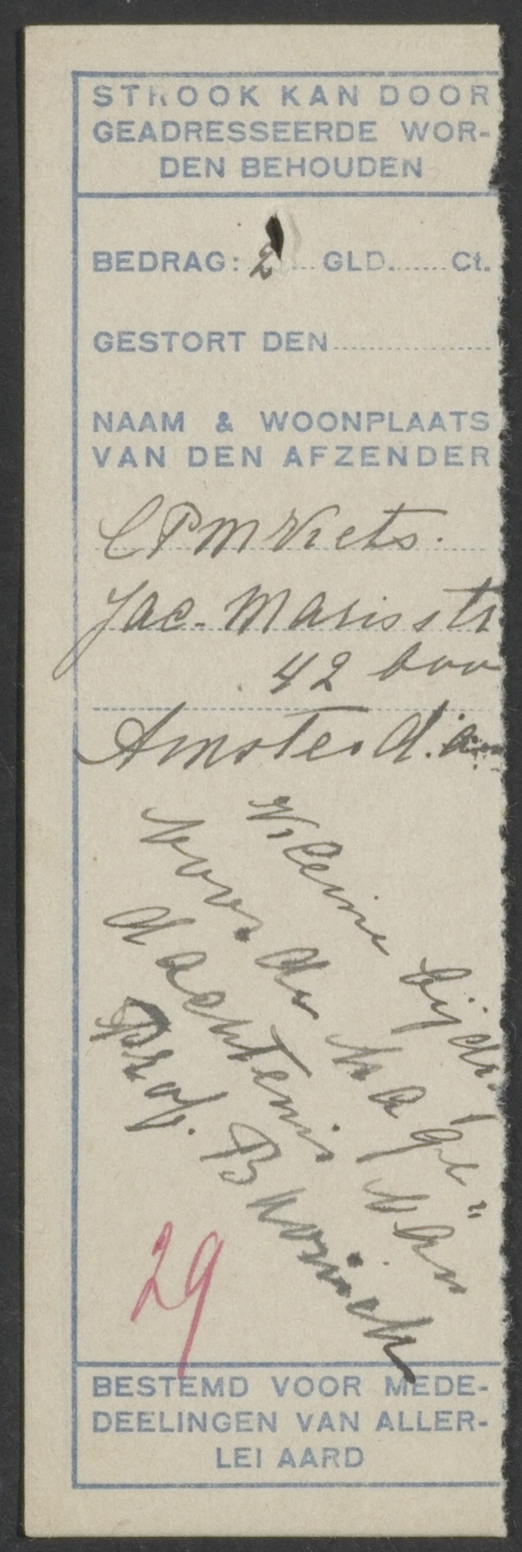 STROOK KAN DOOR
GEADRESSEERDE WOR-
DEN BEHOUDEN
BEDRAG: 2 GLD. Ct.
GESTORT DEN
NAAM & WOONPLAATS
VAN DEN AFZENDER
C P M Viets.
Jac. Marisstr
42 bov
Amsterd.
Kleine bijdr.
voor de nage"
dachtenis van
Prof. Bunsich
29
BESTEMD VOOR MEDE-
DEELINGEN VAN ALLER-
LEI AARD